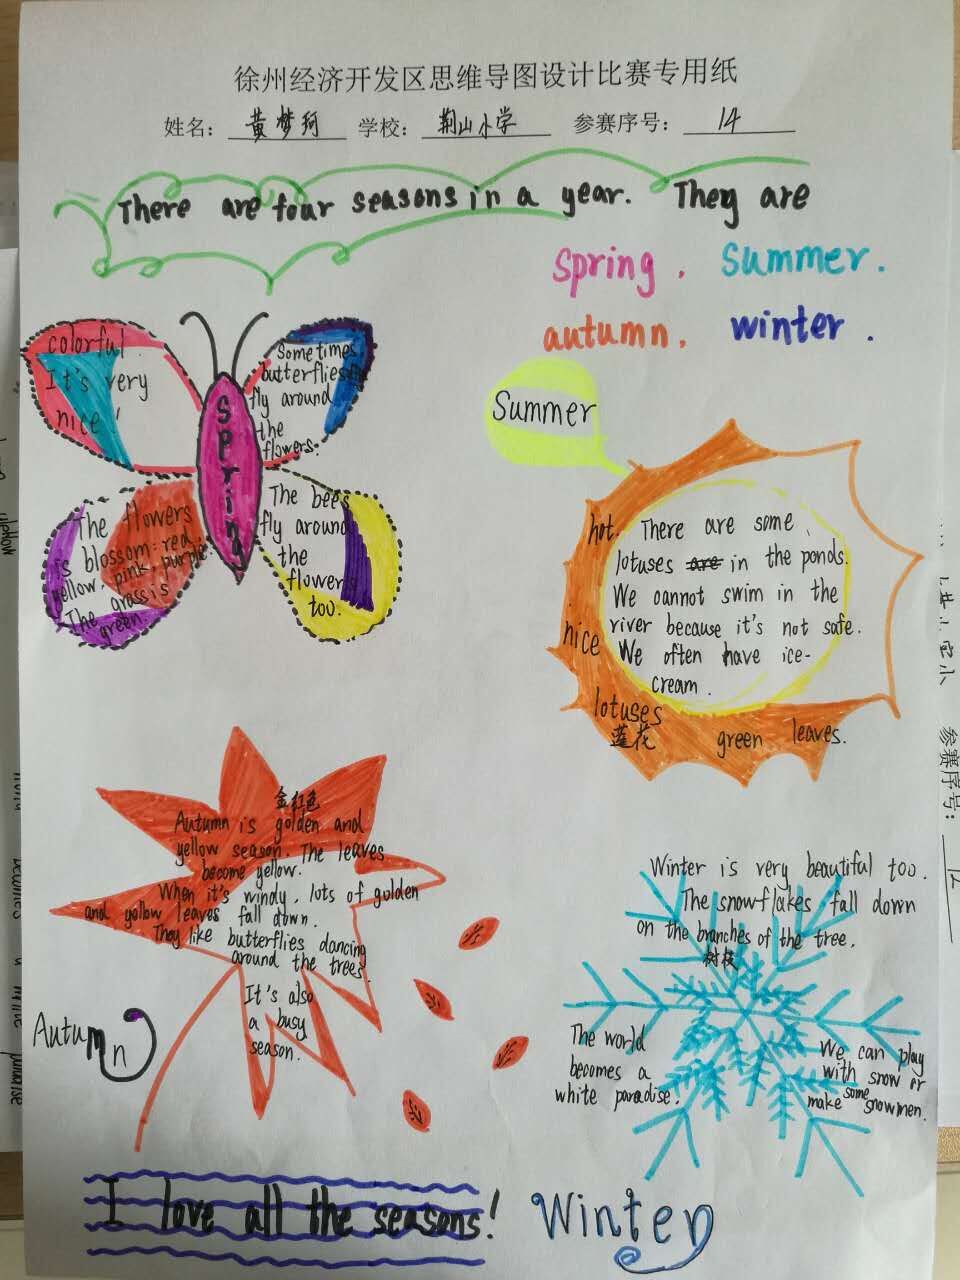 徐州经济开发区思维导图设计比赛专用纸
姓名: 黄梦珂 学校: 荆山小学 参赛序号: 14
There are four seasons in a year. They are
spring. summer.
autumn. winter.
colorful.
It's very
nice!
Sometimes
butterflies fly
fly around
the
flowers.
spring
The flowers
is blossom: red
yellow, pink, purple
The grass is
green.
The bees
fly around
the
flowers
too.
Summer
hot.
nice
lotuses
莲花
green leaves.
There are some
lotuses are in the ponds.
We cannot swim in the
river because it's not safe.
We often have ice-
cream.
金红色
Autumn is golden and
yellow season. The leaves
become yellow.
When it's windy, lots of golden
and yellow leaves fall down.
They like butterflies dancing
around the trees
It's also
a busy
season.
Autumn
Winter is very beautiful too.
The snowflakes fall down
on the branches of the tree.
树枝
The world
becomes a
white paradise.
We can play
with snow or
make some snowmen.
I love all the seasons!
Winter
参赛序号:
12
yellow